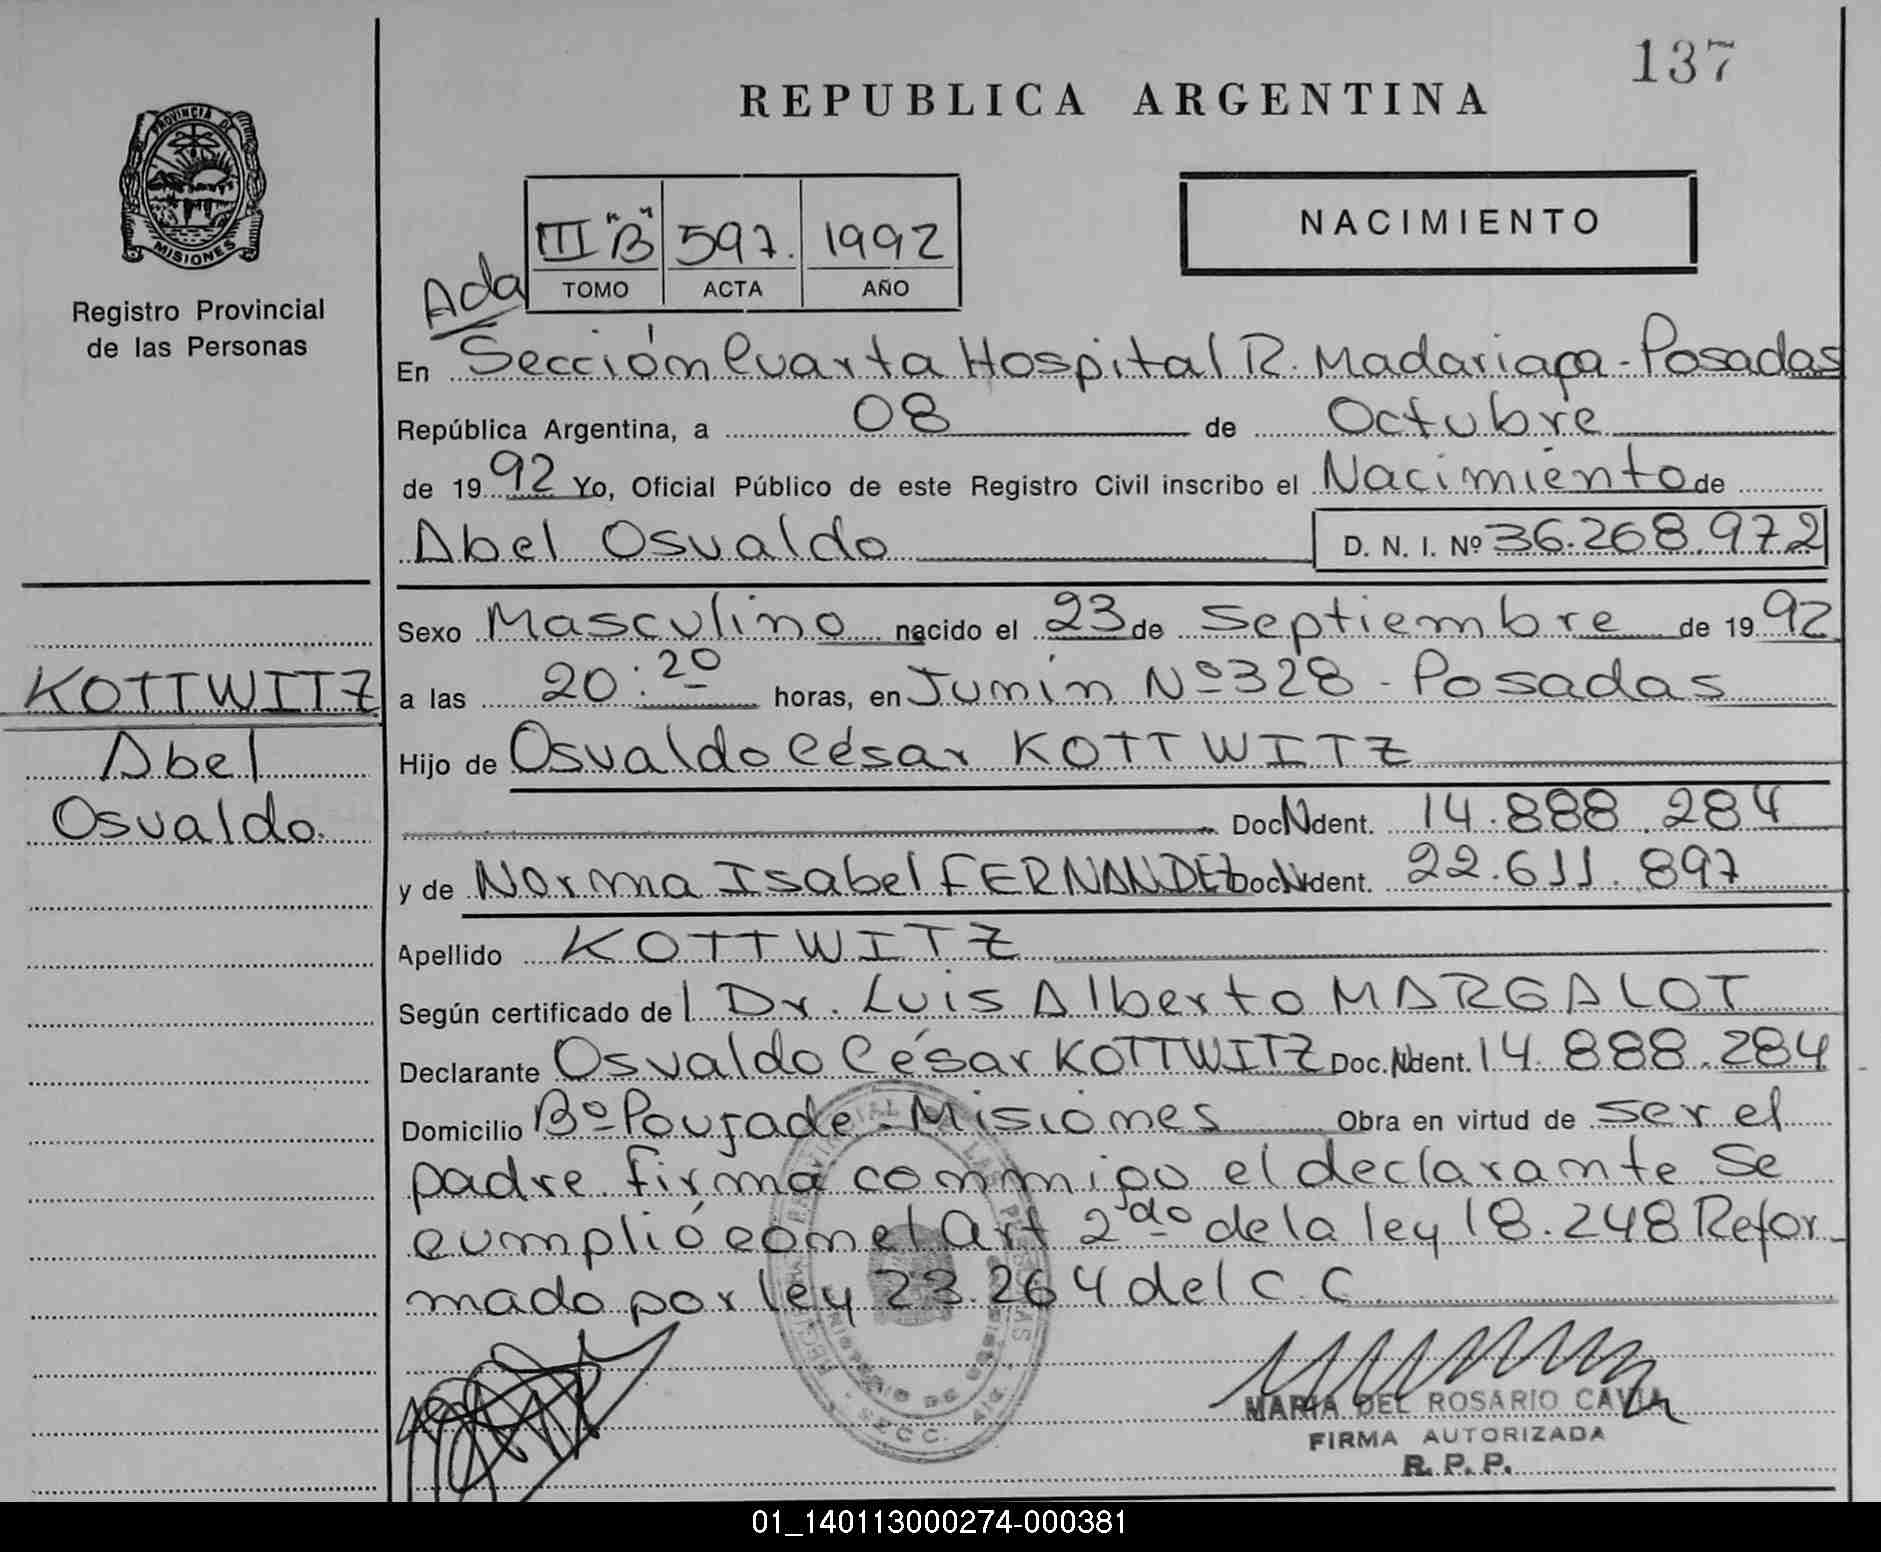 137
REPUBLICA ARGENTINA
PROVINCIA DE
MISIONES
Registro Provincial
de las Personas
III "B" 597. 1992
TOMO ACTA AÑO
NACIMIENTO
Ada
En Sección Cuarta Hospital R. Madariaga - Posadas
República Argentina, a 08 de Octubre
de 1992 Yo, Oficial Público de este Registro Civil inscribo el Nacimiento de
Abel Osvaldo D. N. I. Nº 36.268.972
Sexo Masculino nacido el 23 de Septiembre de 1992
KOTTWITZ
Abel
Osvaldo.
a las 20:20 horas, en Junín Nº 328 - Posadas
Hijo de Osvaldo César KOTTWITZ
Doc N Ident. 14.888.284
y de Norma Isabel FERNANDEZ Doc N Ident. 22.611.897
Apellido KOTTWITZ
Según certificado del Dr. Luis Alberto MARGALOT
Declarante Osvaldo César KOTTWITZ Doc. N Ident. 14.888.284
Domicilio Bº Poujade - Misiones Obra en virtud de ser el
padre. firma conmigo el declarante Se
cumplió con el Art 2do de la ley 18.248 Refor-
mado por ley 23.264 del C.C
MARIA DEL ROSARIO CAVIA
FIRMA AUTORIZADA
R. P. P.
01_140113000274-000381